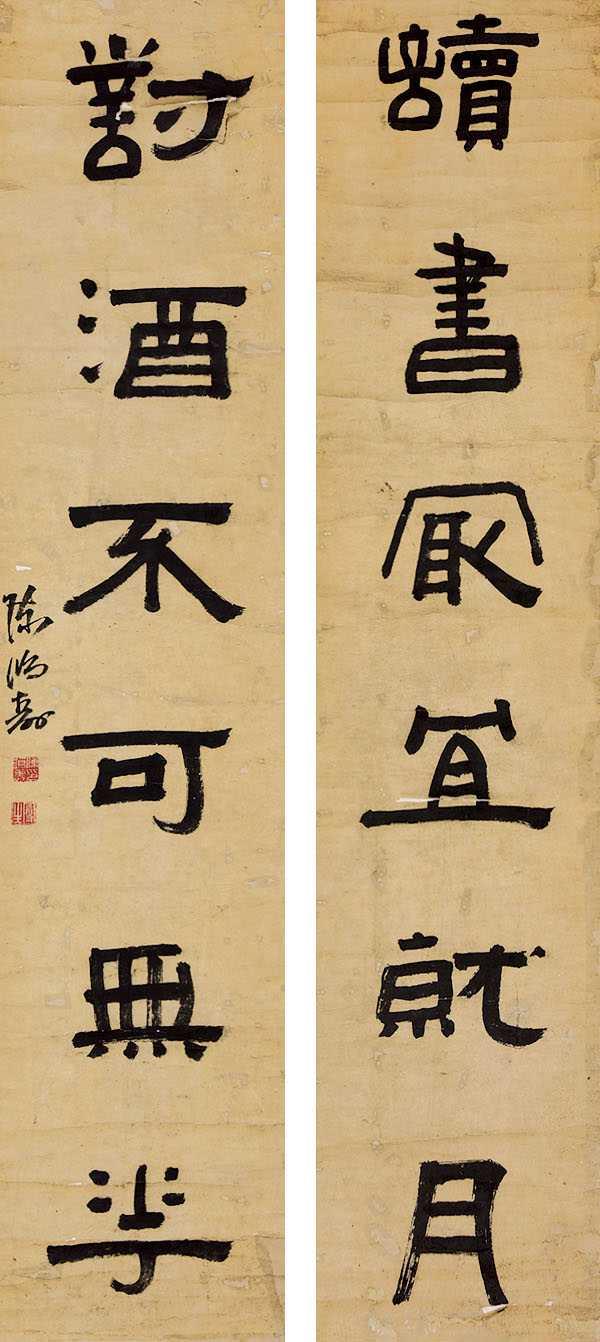 讀書冣宜就月
對酒不可無華
陳鴻壽